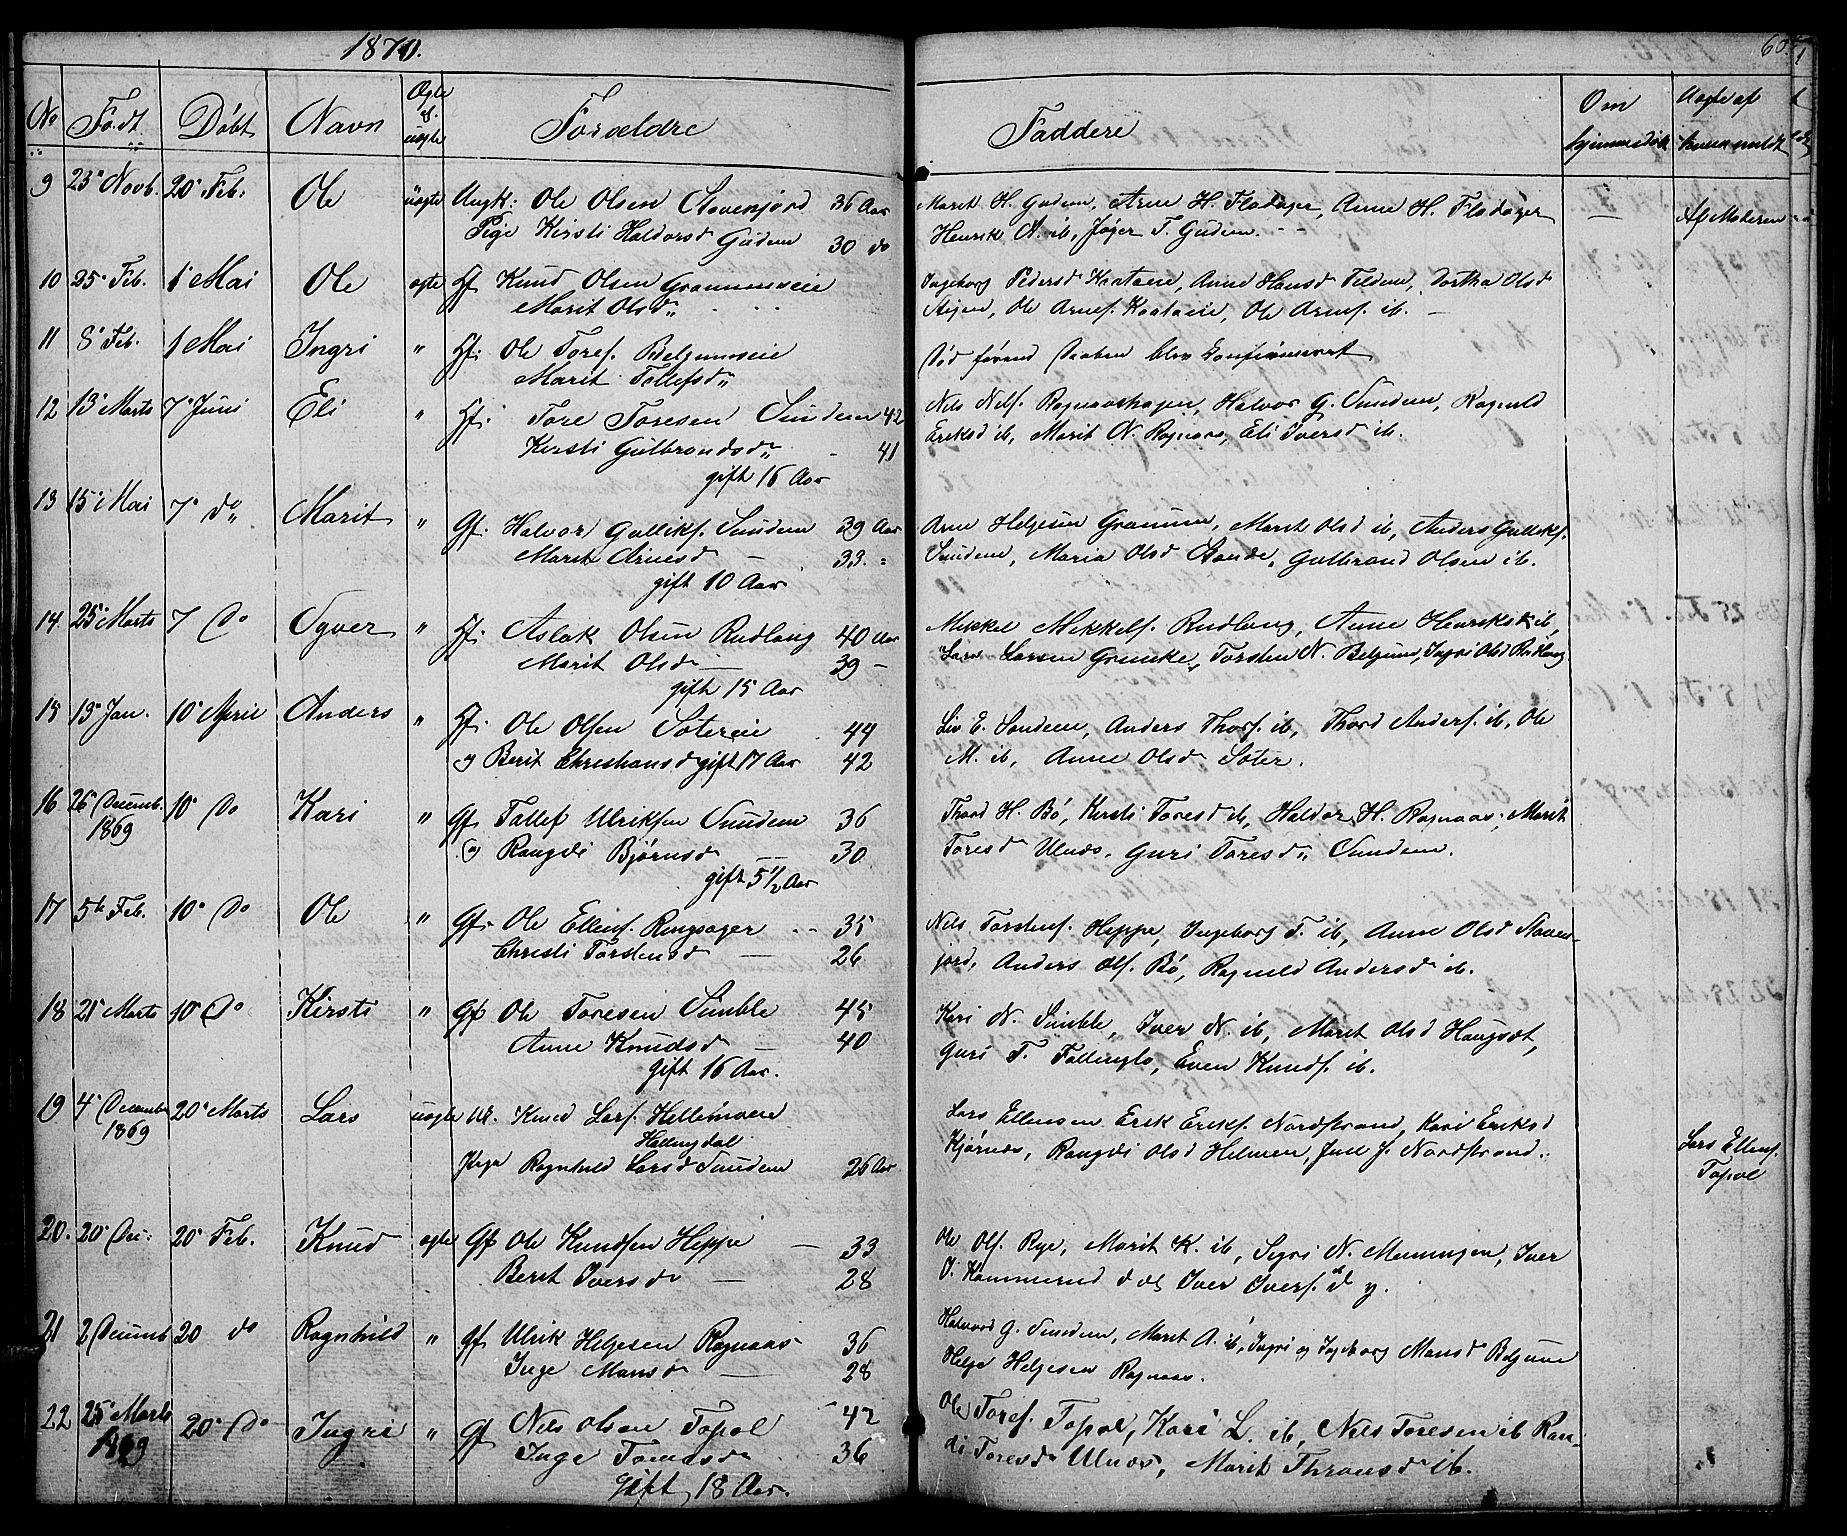 1870.
60.
No Født. Døbt Navn Ægte el. uægte Forældre Faddere Om hjemmedøbt Uægte af hvem meldt
9 25 Novb. 20 Feb. Ole uægte Ungk: Ole Olsen Stavenjord 36 Aar Marit H. Gudem, Arne H. Fladager, Anne H. Fladager — Af Moderen
Pige Kirsti Haldorsd Gudem 30 do Henrik N. ib, Jøger T. Gudem.
10 25 Feb. 1 Mai Ole ægte Hf. Knud Olsen Gronenseie Ingeborg Pedersd Kaataeie, Anne Hansd Feldem, Dorthe Olsd
Marit Olsd Ole Arnes. Kaataeie, Ole Arnes. ib.
11 8 Feb. 1 Mai Ingri " Hf: Ole Tores. Belgumseie Død førend Daaben blev Confirmeret
Marit Tollefsd
12 13 Marts 7 Juni Eli " Hf: Tore Toresen Sundem 42 Nils Nils. Rognaashagen, Halvor G. Sundem, Ragnild
Kirsti Gulbrandsd 41 Eriksd ib, Marit N. Rognaas, Eli Iversd ib.
gift 16 Aar
13 15 Mai 7 do Marit " Gf: Halvor Gulliks. Sundem 39 Aar Arne Helgesen Gronum, Marit Olsd ib, Anders Gulliks.
Marit Arnesd — 33 Sundem, Maria Olsd Aande, Gulbrand Olsen ib.
gift 10 Aar
14. 25 Marts 7 Do Syver " Hf: Aslak Olsen Rudlang 40 Aar Mikkel Mikkels. Rudlang, Anne Henriksd ib,
Marit Olsd — 39 — Lars Larsen Grimke, Torsten N. Belgum, Ingri Olsd Rudlang
gift 15 Aar
15 13 Jan. 10 April Anders " Hf. Ole Olsen Sotereie 44 Liv E. Sundem, Anders Thors. ib, Thord Anders. ib, Ole
og Berit Christiansd gift 17 Aar 42 M. ib, Anne Olsd Soter.
16 26 Decemb. 1869 10 Do Kari " Gf. Tollef Ulriksen Sundem 36 Thord H. Bø, Kirsti Toresd ib, Haldor H. Rognaas, Marit
og Rangdi Bjørnsd — 30 Toresd Ulnæs, Guri Toresd Sundem.
gift 5 1/2 Aar
17 5 Feb. 10 Do Ole " Gf. Ole Ellens. Ringsager 35 Nils Torstens. Heppe, Ingeborg T. ib, Anne Olsd Staven-
Christi Torstensd — 26 jord, Anders Ols. Bø, Ragnild Andersd ib.
18 21 Marts 10 Do Kirsti " Gf Ole Toresen Simble 45 Kari N. Simble, Iver N. ib, Marit Olsd Haugsæt,
Anne Knudsd — 40 Guri T. Follinglo, Even Knuds. ib.
gift 16 Aar.
19 4 December 1869 20 Marts Lars uægte Uk. Knud Lars. Hellemoeie Lars Ellensen Erik Eriks. Nordstrand, Kari Eriksd Lars Ellens.
Hallingdal
Pige Ragnhild Larsd Sundem 26 Aar Kjørnæs, Rangdi Olsd Helmen, Juul J. Nordstrand. Topol
20. 20 Dec: 20 Feb. Knud ægte Gf Ole Knudsen Heppe — 33 Ole Ols. Rye, Marit K. ib, Sigri N. Mæningen, Iver
Berit Iversd — 28 O. Iver Ivers.
21 2 Decemb 20 do Ragnhild " Gf Ulrik Helgesen Rognaas 36 Halvard G. Sundem, Marit A. ib, Ingri og Ingeborg Mansd Belgum
Inge Mansd — 28 Helge Helgesen Rognaas.
22 25 Marts 1869 20 Do Ingri " Gf Nils Olsen Topol 42 Ole Tores. Topol, Kari L. ib, Nils Toresen ib Ran-
Inge Tomasd 36 di Toresd Ulnæs, Marit Thronsd ib.
gift 18 Aar.